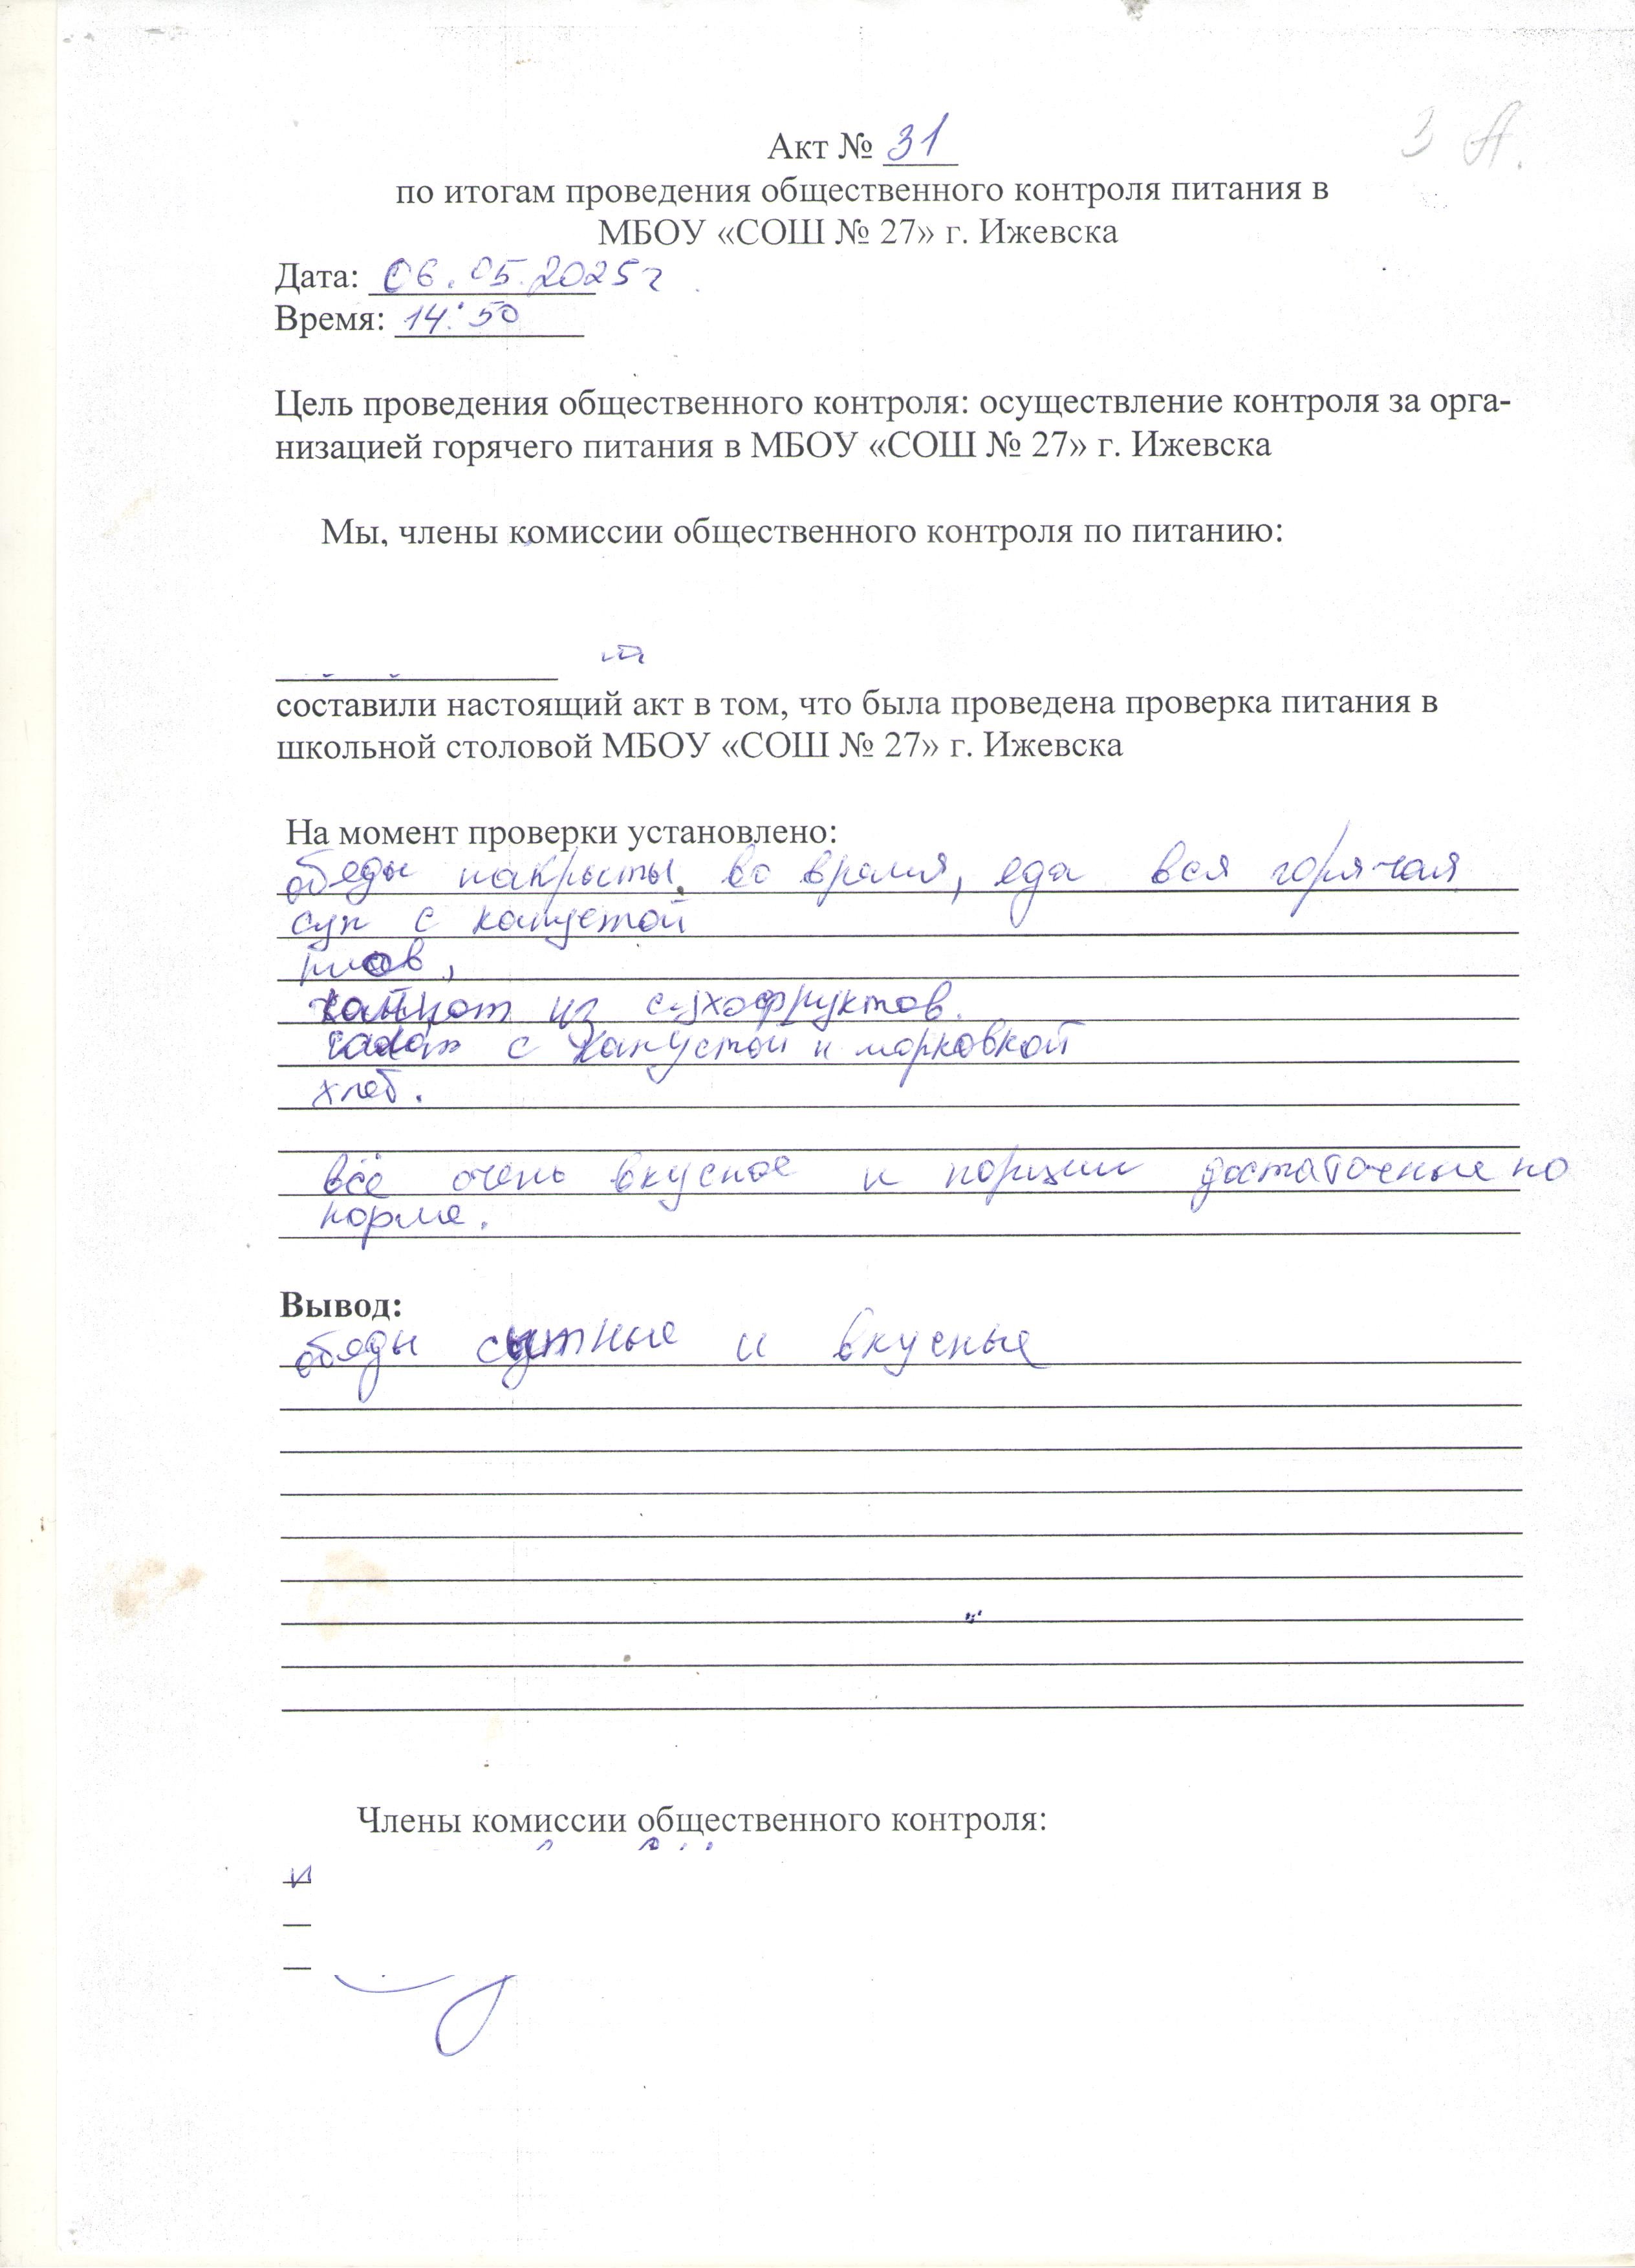 3 А.
Акт № 31
по итогам проведения общественного контроля питания в
МБОУ «СОШ № 27» г. Ижевска
Дата: 06.05.2025 г
Время: 14:50
Цель проведения общественного контроля: осуществление контроля за орга-
низацией горячего питания в МБОУ «СОШ № 27» г. Ижевска
Мы, члены комиссии общественного контроля по питанию:
составили настоящий акт в том, что была проведена проверка питания в
школьной столовой МБОУ «СОШ № 27» г. Ижевска
На момент проверки установлено:
обеды накрыты, во время, еда вся горячая
суп с капустой
плов,
компот из сухофруктов.
салат с капустой и морковкой
хлеб.
всё очень вкусное и порции достаточные по
норме.
Вывод:
обеды сытные и вкусные
Члены комиссии общественного контроля: